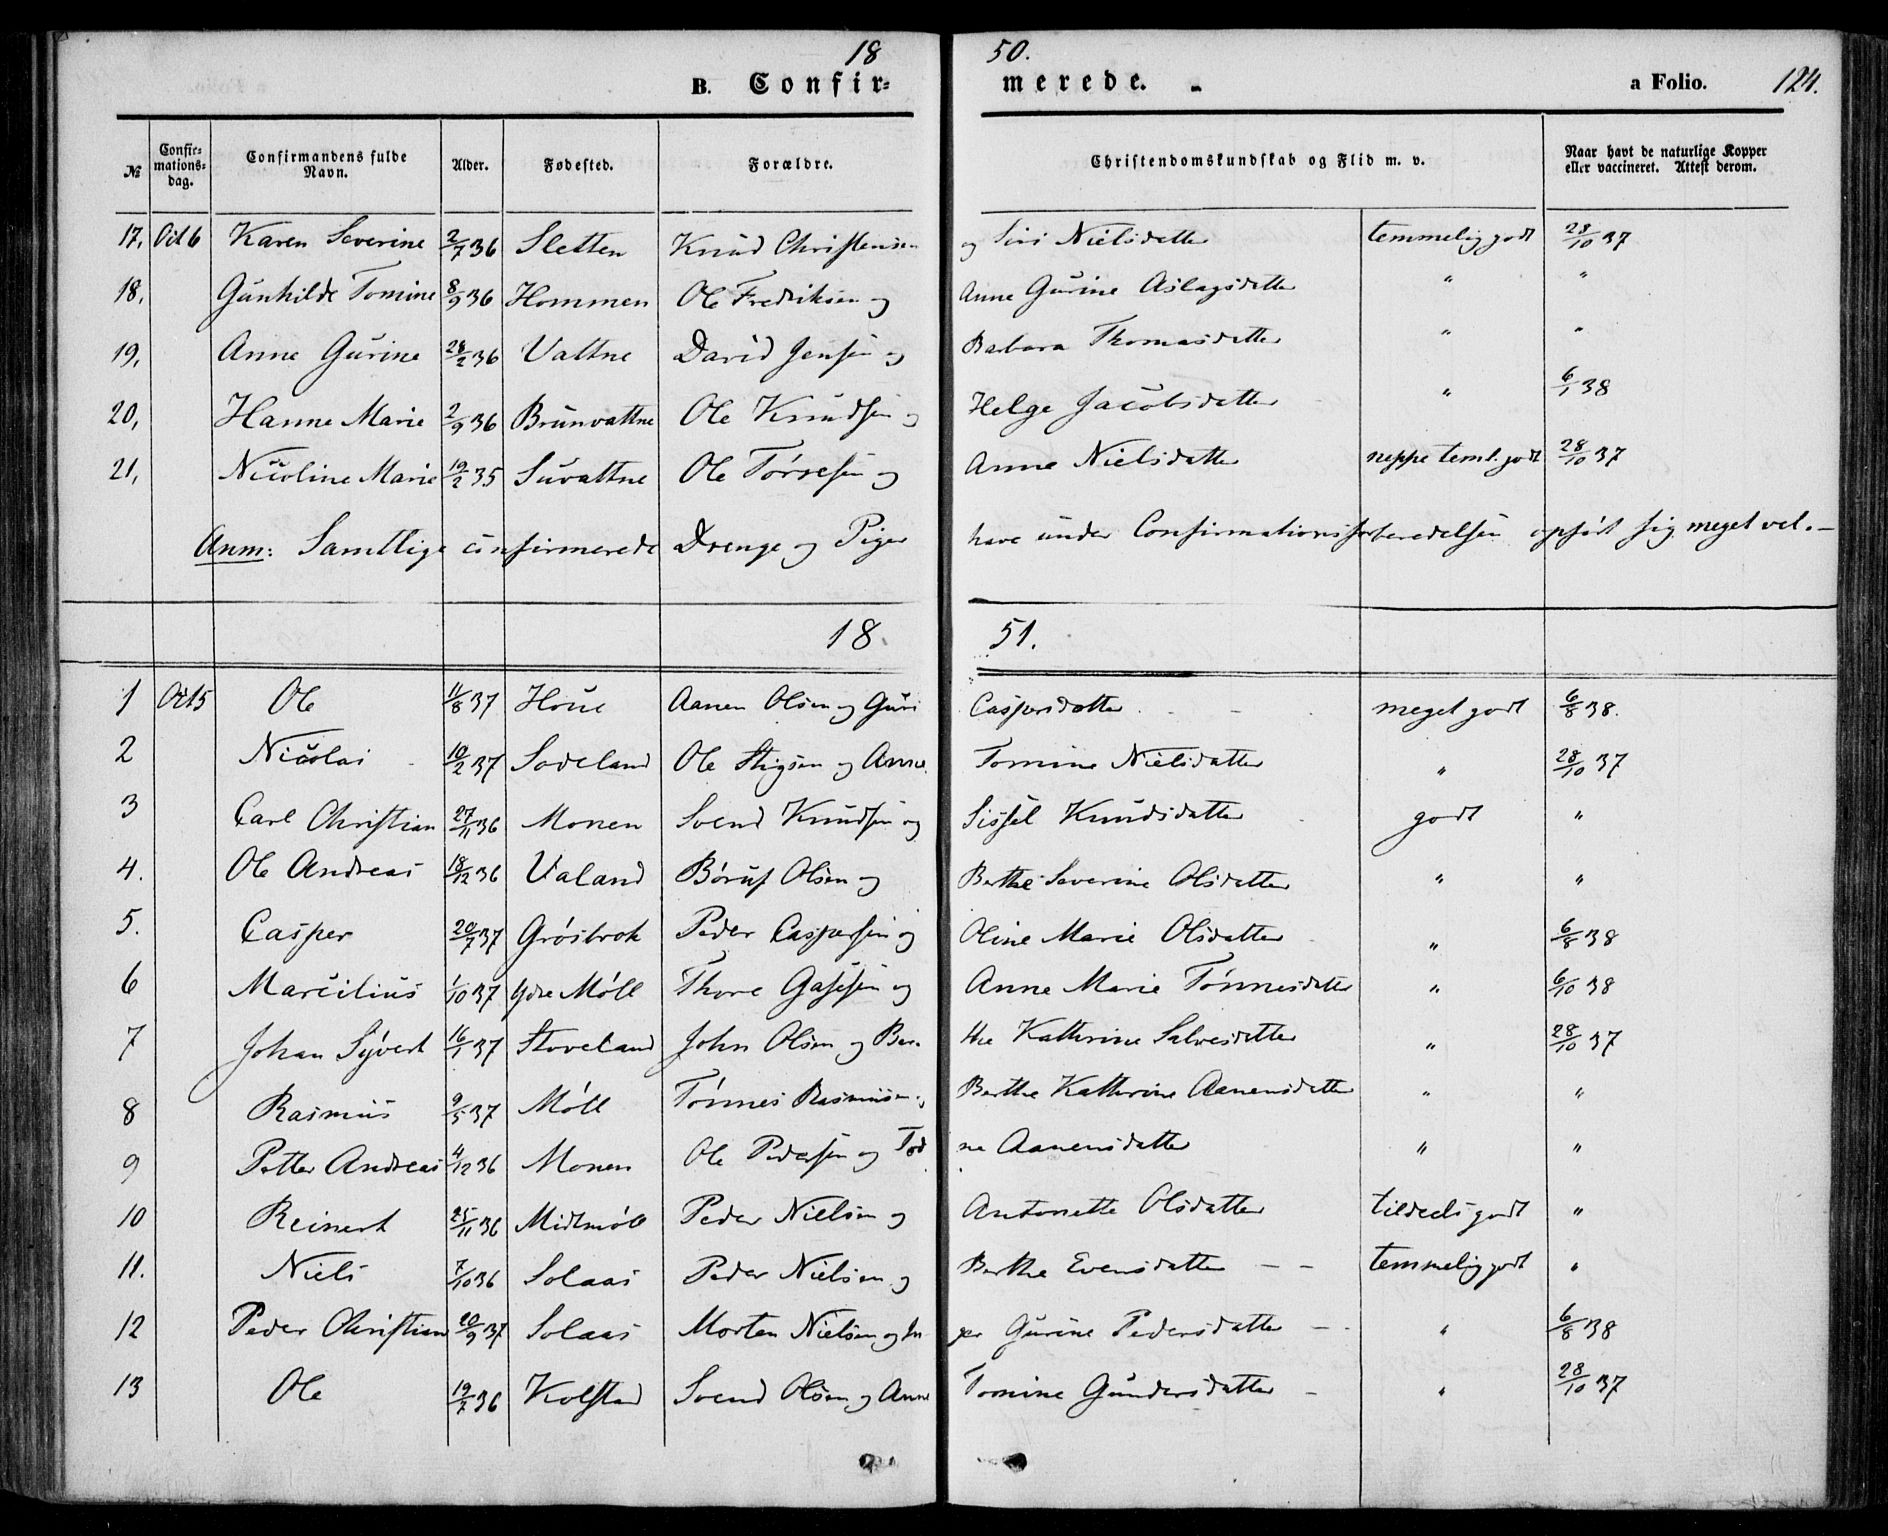 18 50.
B. Confir= merede. - a Folio. 124.
№ Confir=mations=dag. Confirmandens fulde Navn. Alder. Fødested. Forældre. Christendomskundskab og Flid m. v. Naar havt de naturlige Kopper eller vaccineret. Attest derom.
17, Oct 6 Karen Severine 2/7 36 Sletten Knud Christensen og Siri Nielsdatter temmelig godt 28/10 37
18, Gunhilde Tomine 8/9 36 Hommen Ole Fredriksen og Anne Gurine Aslagsdatter " "
19, Anne Gurine 28/2 36 Vattne David Jensen og Barbara Thomasdatter " "
20, Hanne Marie 2/9 36 Brunvattne Ole Knudsen og Helge Jacobsdatter " 6/1 38
21, Nicoline Marie 19/2 35 Suvattne Ole Torresen og Anne Nielsdatter neppe teml. godt 28/10 37
Anm: Samtlige confirmerede Drenge og Piger have under Confirmationsforberedelsen opført sig meget vel. –
18 51.
1 Oct 5 Ole 11/8 37 Houe Aanen Olsen og Guri Caspersdatter - - meget godt 6/8 38.
2 Nicolai 10/2 37 Sodeland Ole Stigsen og Anne Tomine Nielsdatter " 28/10 37
3 Carl Christian 27/11 36 Monen Svend Knudsen og Sissel Knudsdatter godt "
4. Ole Andreas 18/12 36 Valand Børuf Olsen og Berthe Severine Olsdatter " "
5. Casper 20/7 37 Grøsbrok Peder Caspersen og Oline Marie Olsdatter " 6/8 38
6 Marcilius 1/10 37 Ydre Møll Thore Gasesen og Anne Marie Tønnesdatter " 6/10 38
7 Johan Syvert 16/1 37 Stoveland John Olsen og Ber= the Kathrine Salvesdatter " 28/10 37
8 Rasmus 9/5 37 Møll Tønnes Rasmusen og Berthe Kathrine Aanensdatter " "
9 Petter Andreas 4/12 36 Monen Ole Pedersen og Tod ne Aanensdatter " "
10 Reinert 25/11 36 Midtmøll Peder Nielsen og Antonette Olsdatter tildeels godt "
11. Niels 7/10 36 Solaas Peder Nielsen og Berthe Evensdatter - - temmelig godt "
12 Peder Christian 20/9 37 Solaas Morten Nielsen og In ger Gurine Pedersdatter - " 6/8 38
13 Ole 19/7 36 Kolstad Svend Olsen og Anne Tomine Gundersdatter - " 28/10 37